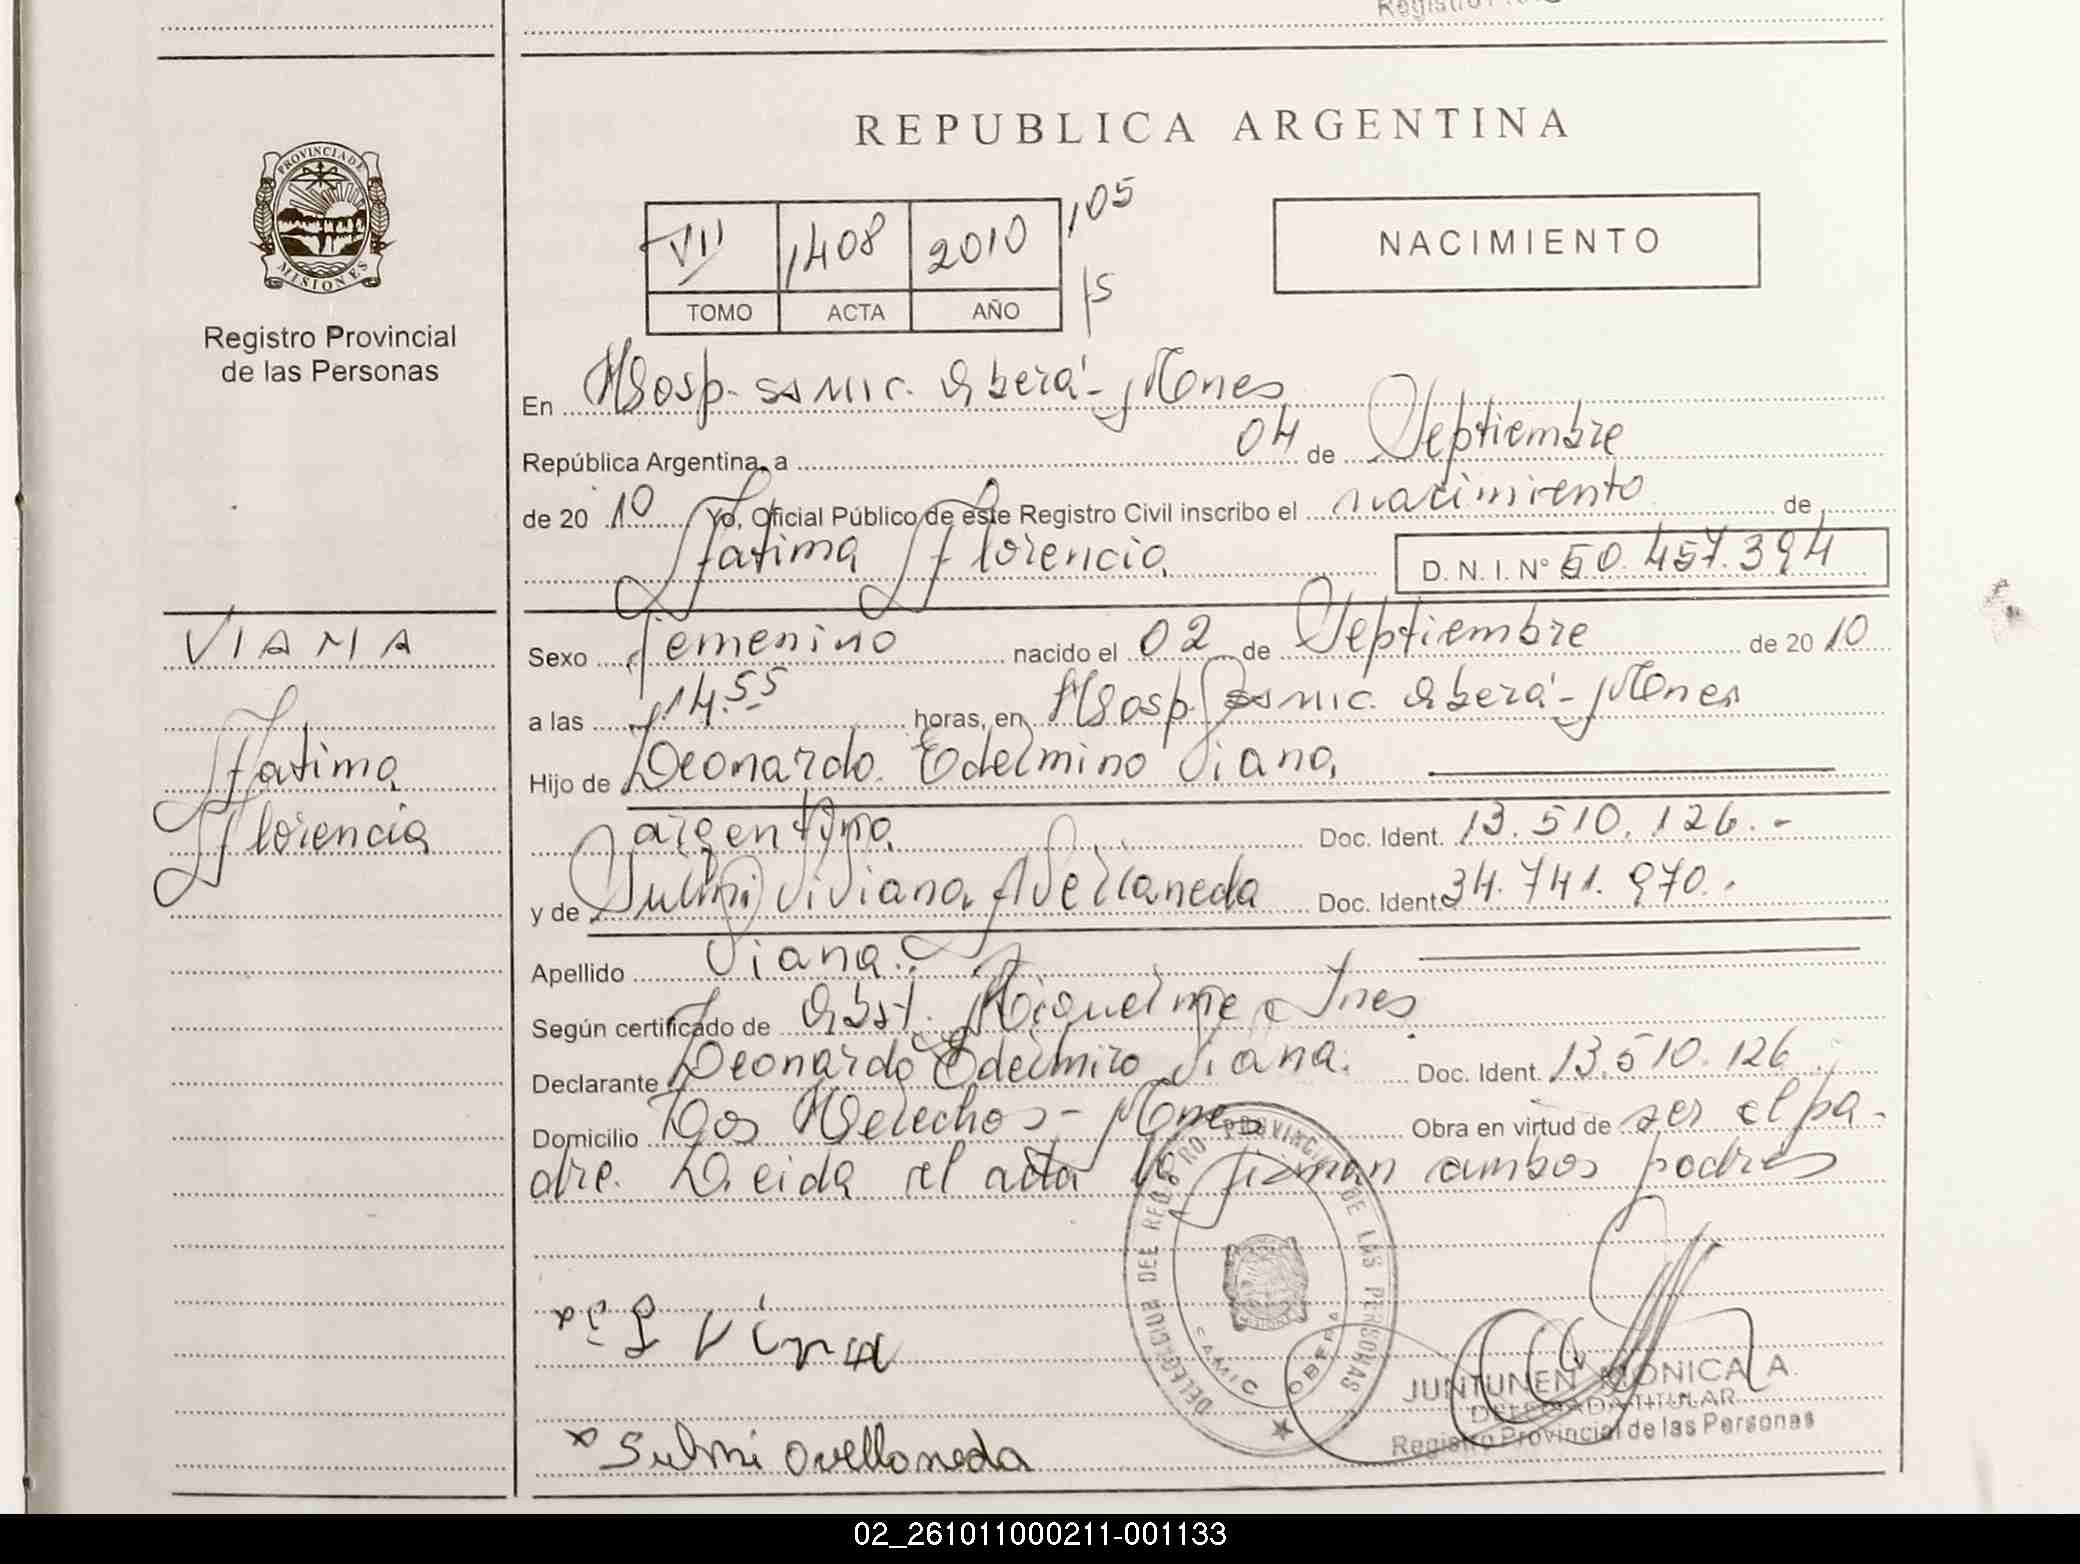 REPUBLICA ARGENTINA
PROVINCIA DE
MISIONES
Registro Provincial
de las Personas
VII 1408 2010 105
15
TOMO ACTA AÑO
NACIMIENTO
En Hosp. SAMIC. Oberá - Mnes
República Argentina, a 04 de Septiembre
de 2010 Yo, Oficial Público de este Registro Civil inscribo el nacimiento de
Fatima Florencia D. N. I. Nº 50.457.394
VIANA
Fatima
Florencia
Sexo femenino nacido el 02 de Septiembre de 2010
a las 14.55 horas, en Hosp. SAMIC. Oberá - Mnes
Hijo de Leonardo Edelmiro Viana
argentina Doc. Ident. 13.510.126.-
y de Sulmi Viviana Avellaneda Doc. Ident. 34.741.970.-
Apellido Viana.
Según certificado de Obst. Riquelme Ines
Declarante Leonardo Edelmiro Viana. Doc. Ident. 13.510.126
Domicilio Dos Helechos - Mnes Obra en virtud de ser el pa-
dre. Leida el acta la firman ambos padres
Viana
Sulmi avellaneda
DELEGACION DEL REGISTRO PROVINCIAL DE LAS PERSONAS
SAMIC OBERA
JUNTUNEN MONICA A.
DELEGADA TITULAR
Registro Provincial de las Personas
02_261011000211-001133